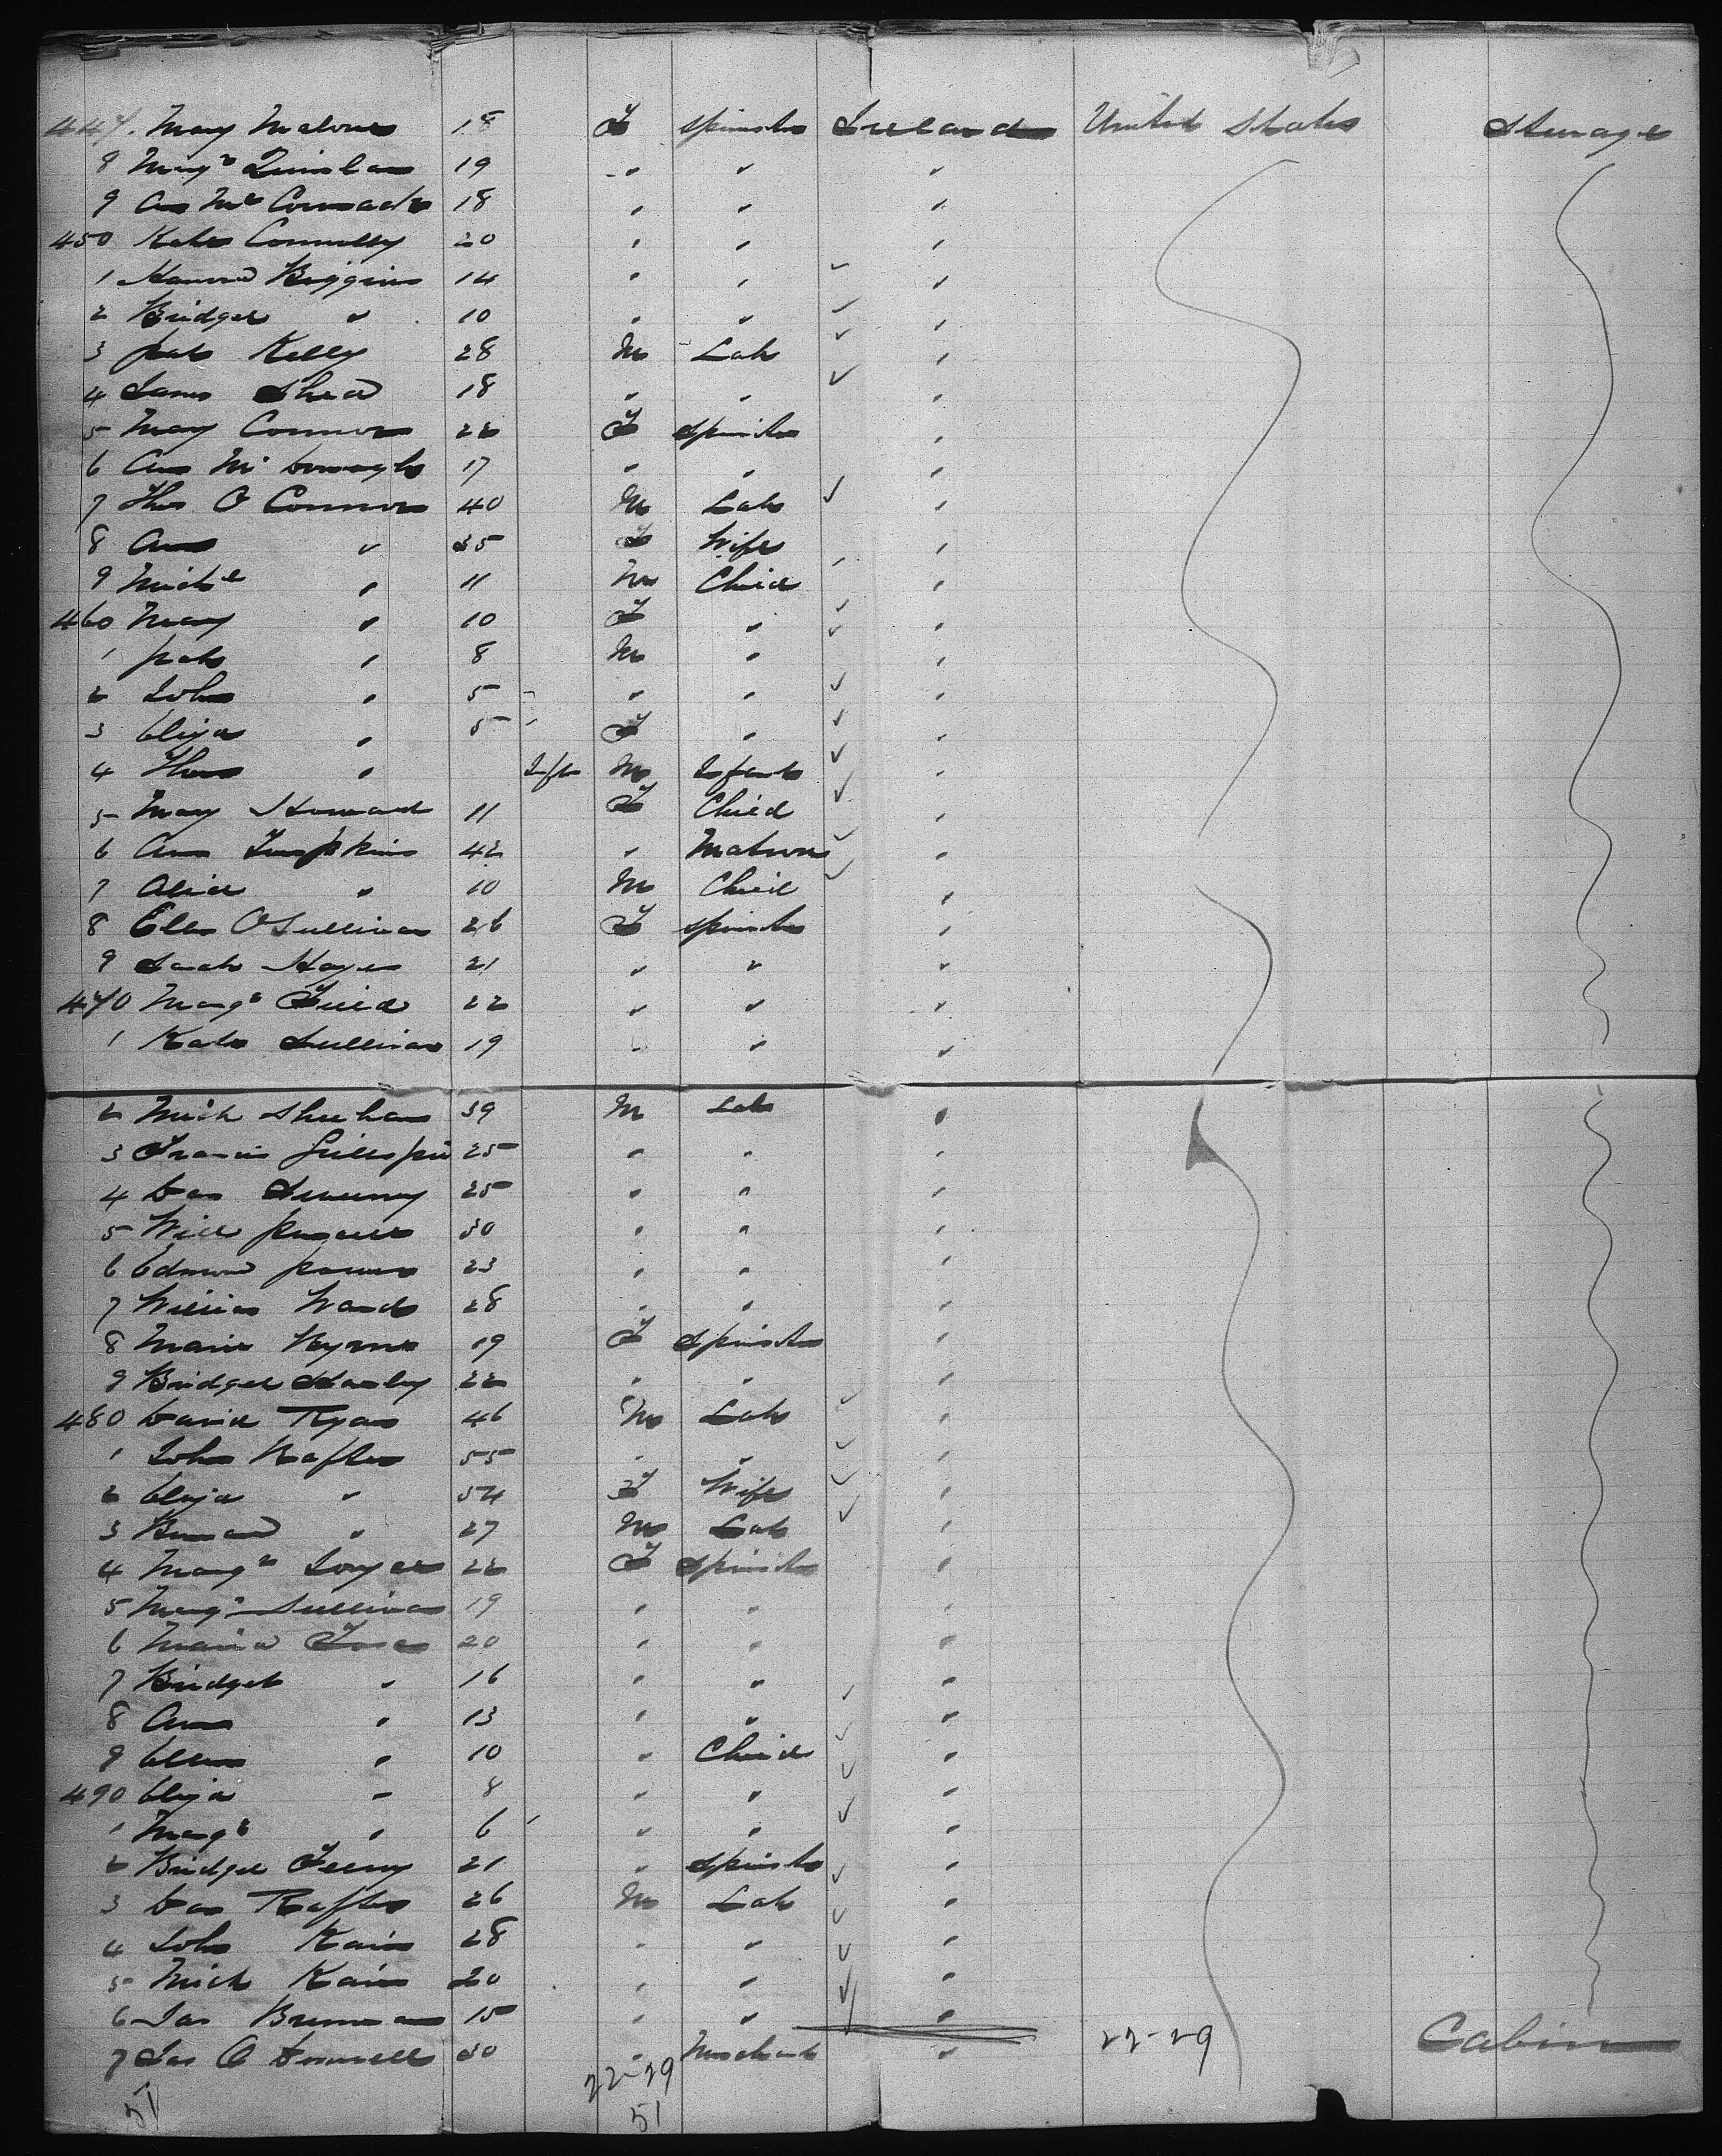 447. Mary Malone 18 F Spinster Ireland United States Steerage
8 Margt Quinlan 19 " " "
9 Ann Mc 18 " " "
450 Kate Connolly 20 " " "
1 Hannah Higgins 14 " " "
2 Bridget " 10 " " "
3 Pat Kelly 28 M Lab "
4 James Shea 18 " " "
5 Mary Connor 22 F Spinster "
6 Ann Mc 17 " " "
7 Thos O Connor 40 M Lab "
8 Ann " 35 F Wife "
9 Michl " 11 M Child "
460 Mary " 10 F " "
1 Pat " 8 M " "
2 John " 5 " " "
3 Eliza " 5 F " "
4 Thos " Inft M Infant "
5 Mary Howard 11 F Child "
6 Ann 42 " Matron "
7 " 10 M Child "
8 Ellen O'Sullivan 26 F Spinster "
9 Sarah Hayes 21 " " "
470 Margt 22 " " "
1 Kate Sullivan 19 " " "
2 Mich Sheehan 39 M Lab "
3 Francis Gillespie 25 " " "
4 Dan Sweeney 25 " " "
5 Will 30 " " "
6 Edmond Power 23 " " "
7 William Ward 28 " " "
8 Maria Byrne 19 F Spinster "
9 Bridget 22 " " "
480 David Ryan 46 M Lab "
1 John 55 " " "
2 Eliza " 54 F Wife "
3 Bernard " 27 M Lab "
4 Margt 22 F Spinster "
5 Margt Sullivan 19 " " "
6 Maria 20 " " "
7 Bridget " 16 " " "
8 Ann " 13 " " "
9 Ellen " 10 " Child "
490 Eliza " 8 " " "
1 Margt " 6 " " "
2 Bridget Feeny 21 " Spinster "
3 Dan 26 M Lab "
4 John Kain 28 " " "
5 Mich Kain 20 " " "
6 Jas Brennan 15 " " "
7 Jas O Donnell 30 " Merchant " 22-29 Cabin
51 22-29
51